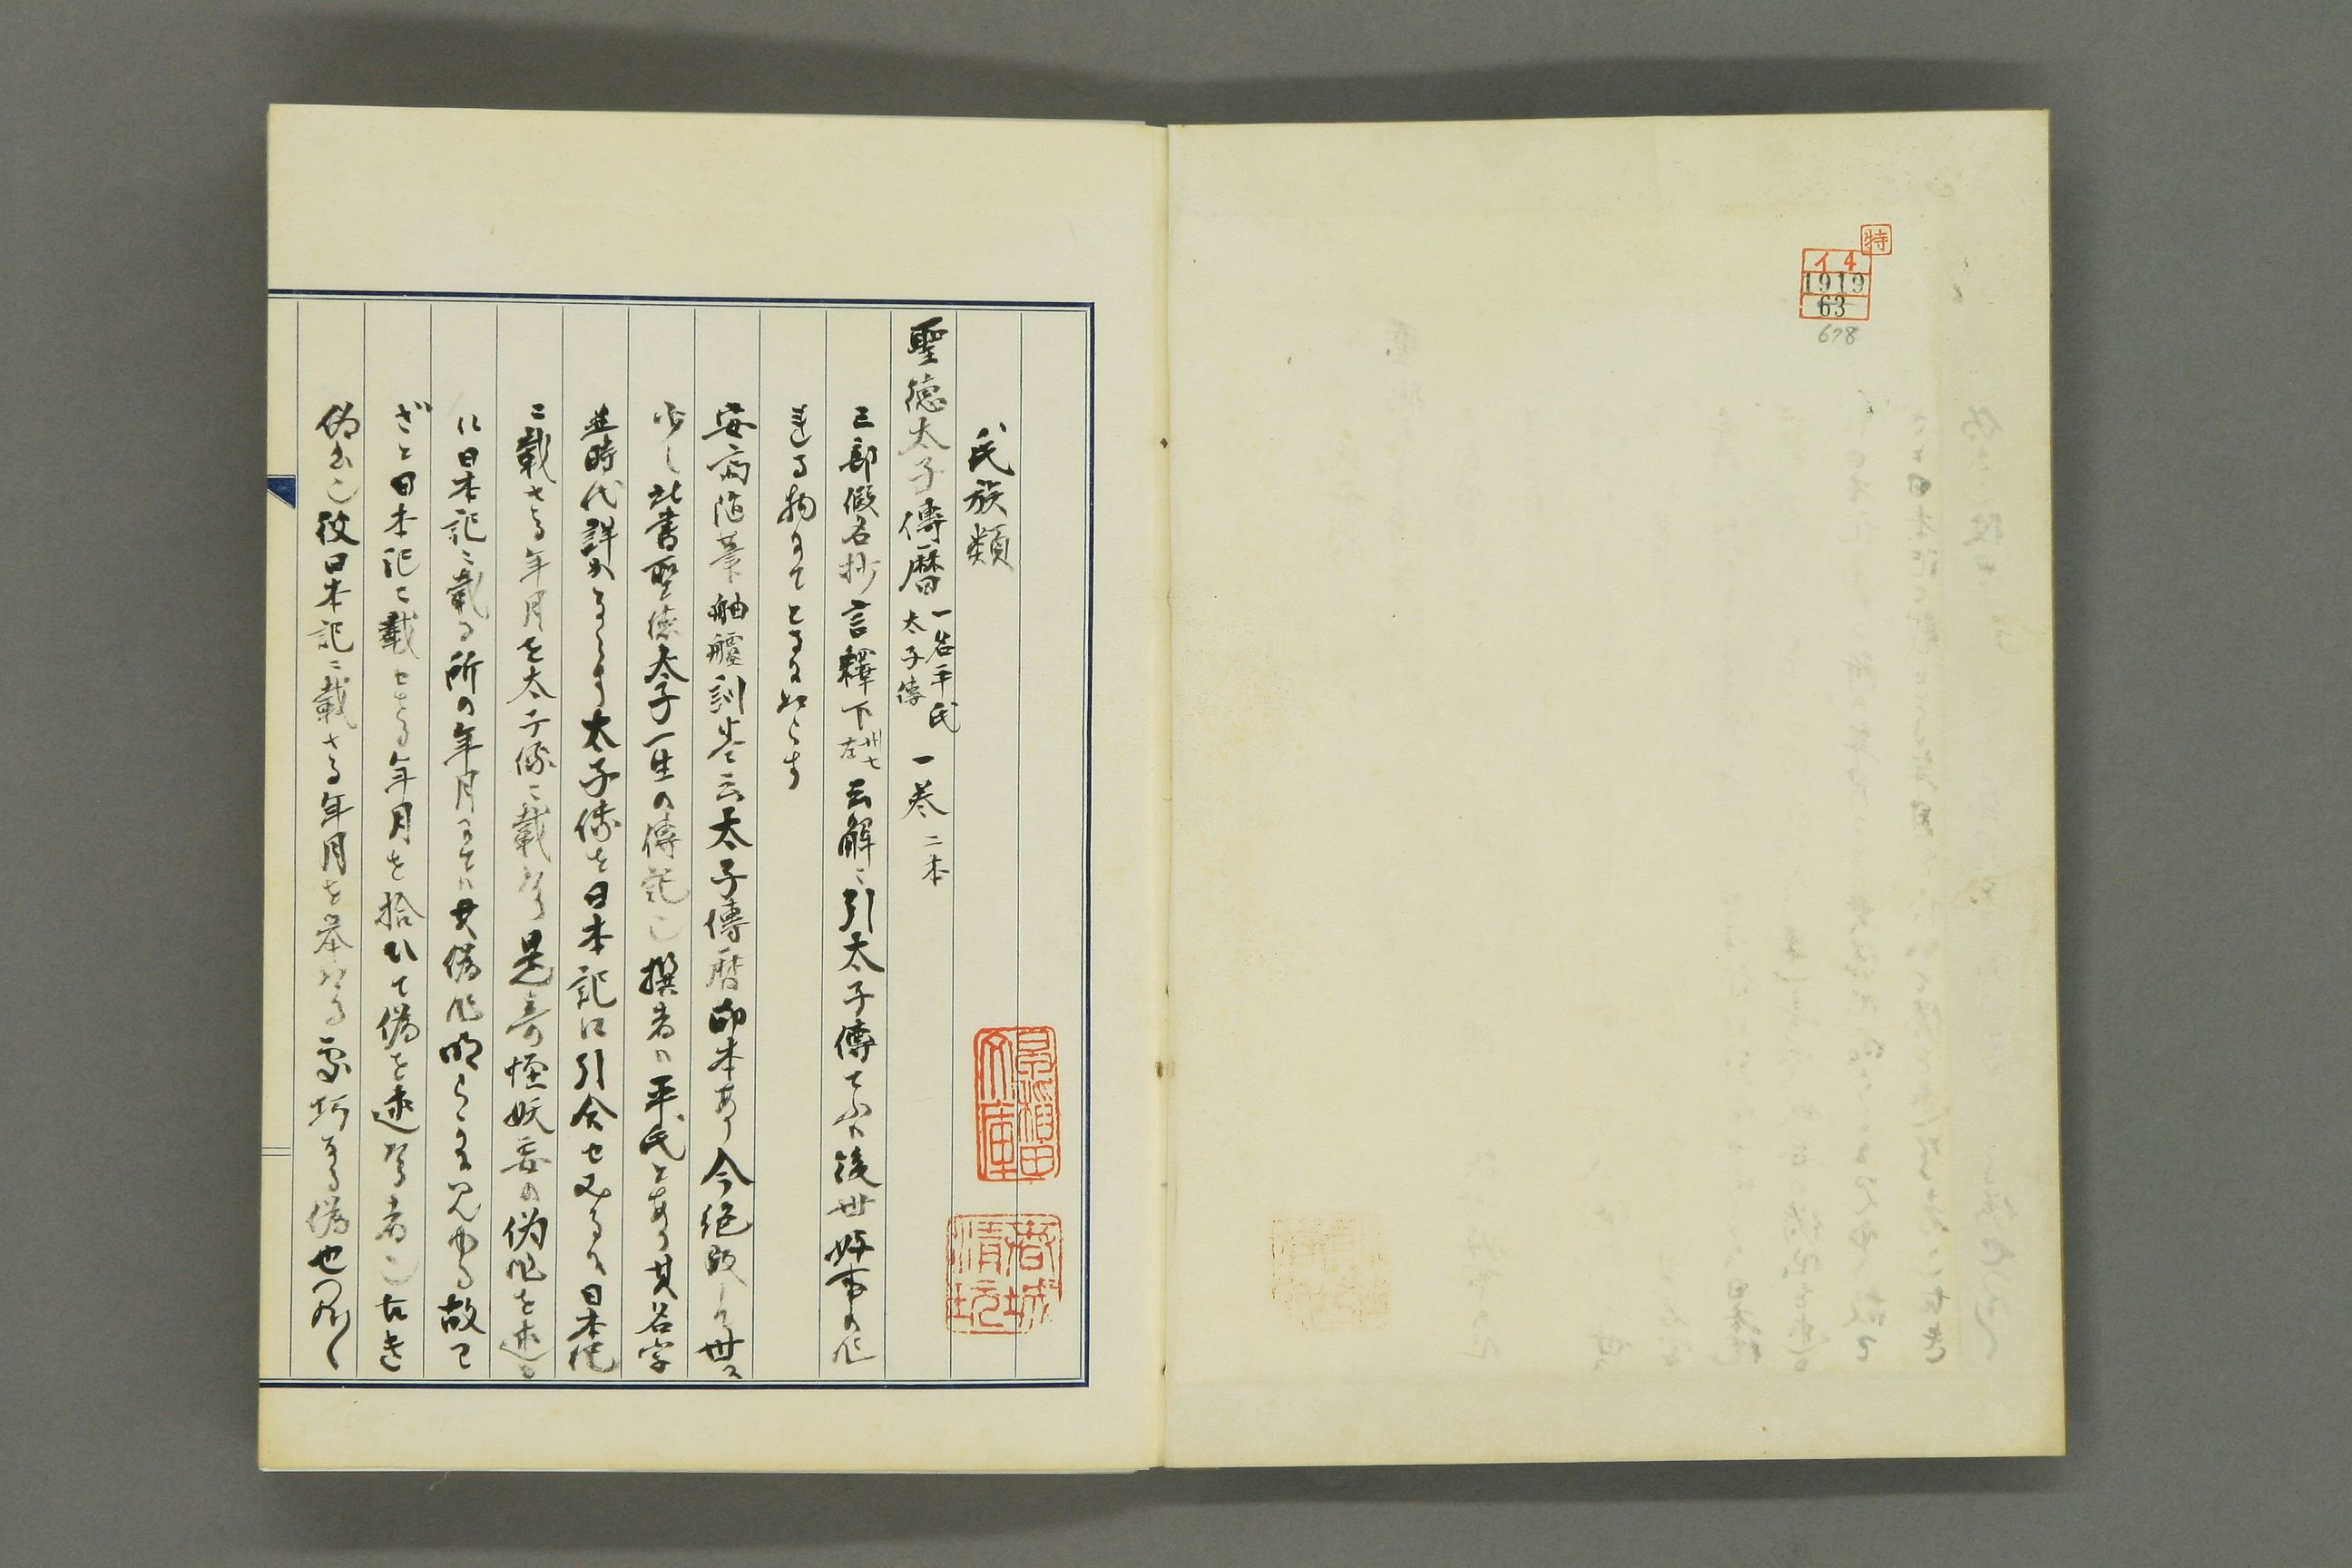 特
イ4
1919
63
678
氏族類
聖徳太子傳暦 一名平氏太子傳 一巻 二本
三部假名抄言釋下 卅七左 云解ニ引太子傳てふハ後世好事の作
れる物にてとるにたらす
安斎随筆舳艫訓巻云太子傳暦印本あり今絶版して世ニ
少し此書聖徳太子一生の傳記也撰者ハ平氏とあり其名字
並時代詳かならす太子傳を日本記に引合せみるに日本記
ニ載さる年月を太子傳ニ載たり是奇怪妖妄の偽作を述る
に日本記ニ載る所の年月にてハ其偽作明らかに見ゆる故に
ざと日本記に載せさる年月を拾ひて偽を述たる者也古き
偽書也彼日本記ニ載さる年月を挙たる処巧なる偽也